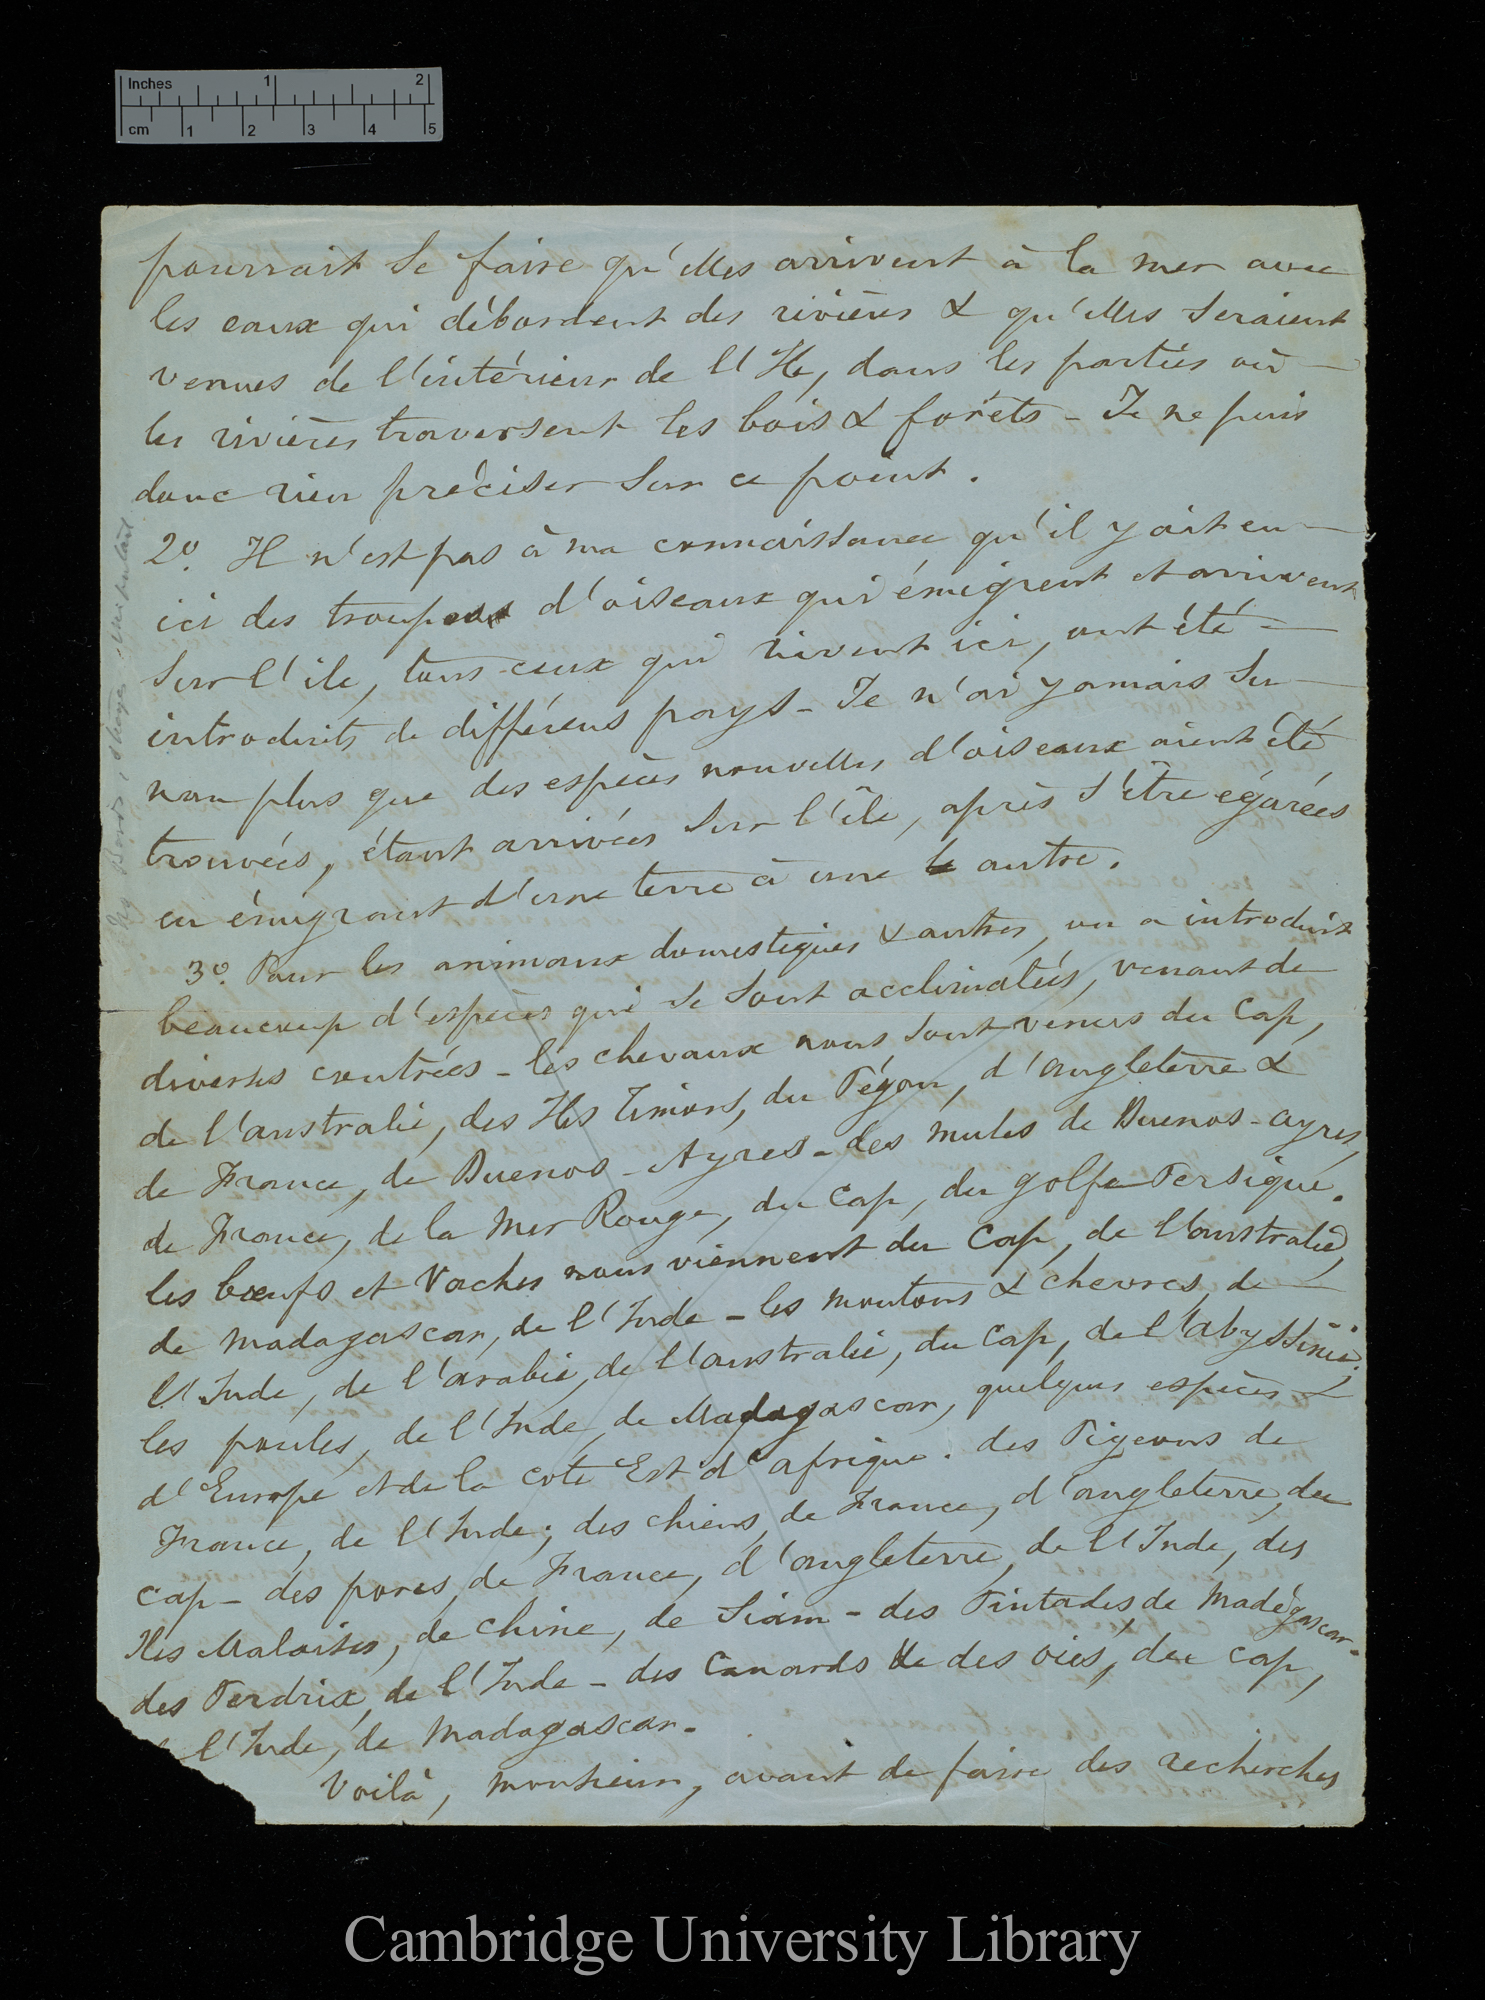 Inches 1 2
cm 1 2 3 4 5
pourrait se faire qu'elles arrivent à la mer avec
les eaux qui débordent des rivières & qu'elles seraient
venues de l'intérieur de l'Ile, dans les parties où —
les rivières traversent les bois & forêts - Je ne puis
donc rien préciser sur ce point.
2º. Il n'est pas à ma connaissance qu'il y ait eu —
ici des troupes d'oiseaux qui émigrent et arrivent
sur l'ile, tous ceux qui vivent ici, ont été —
introduits de différens pays - Je n'ai jamais su —
non plus que des espèces nouvelles d'oiseaux aient été
trouvées, étant arrivées sur l'île, après s'être égarées
en émigrant d'une terre à une autre.
3º. Pour les animaux domestiques & autres, on a introduit
beaucoup d'espèces qui se sont acclimatés, venant de
diverses contrées - les chevaux nous sont venus du Cap,
de l'australie, des Iles Timors, du Pégou, d'angleterre &
de France, de Buenos-Ayres - des mules de Buenos-ayres,
de France, de la Mer Rouge, du Cap, du golfe Persique.
les bœufs et Vaches nous viennent du Cap, de l'australie,
de Madagascar, de l'Inde - les moutons & chevres, de —
l'Inde, de l'arabie, de l'australie, du Cap, de l'abyssinie.
les poules, de l'Inde, de Madagascar, quelques espèces &
d'Europe et de la cote Est d'afrique. des Pigeons de
France, de l'Inde; des chiens, de France, d'angleterre, du
Cap - des porcs, de France, d'angleterre, de l'Inde, des
Iles Malaises, de Chine, de Siam - des Pintades, de Madégascar.
des Perdrix, de l'Inde - des Canards & des oies, du Cap,
l'Inde, de Madagascar -
Voilà, monsieur, avant de faire des recherches
Cambridge University Library